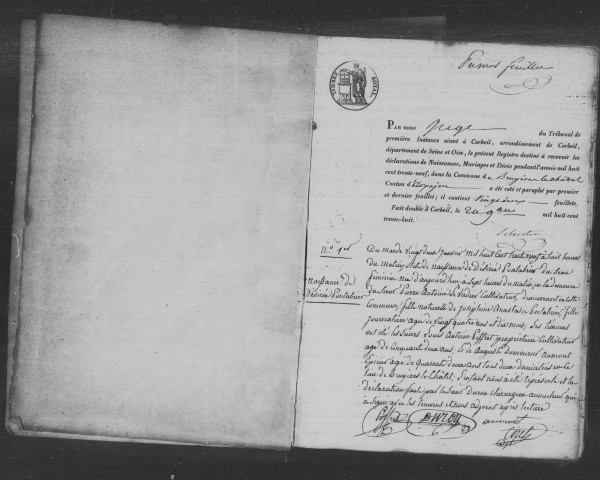 Premier feuillet
TIMBRE ROYAL
PAR nous Juge du Tribunal de
première Instance séant à Corbeil, arrondissement de Corbeil,
département de Seine et Oise, le présent Registre destiné à recevoir les
déclarations de Naissances, Mariages et Décès pendant l'année mil huit
cent trente-neuf, dans la Commune de Bruyères le châtel
Canton d'Arpajon a été coté et paraphé par premier
et dernier feuillet; il contient vingt deux feuillets.
Fait double à Corbeil, le mil huit cent
trente-huit.
N° 1er
Naissance de
Désirée Pantaléon
Du mardi vingt deux Janvier mil huit cent trente neuf à huit heures
du matin, Acte de naissance de Désirée du sexe
féminin née d'aujourd'hui à sept heures du matin, en la demeure
du Sieur Pierre Antoine Cultivateur, demeurant en cette
Commune, fille naturelle de Joséphine Anastasie fille
Journalière âgée de vingt quatre ans et dix mois; Les témoins
ont été les Sieurs Louis Antoine propriétaire Cultivateur
âgé de cinquante deux ans, & de Auguste
âgé de quarante deux ans tous deux domiciliés en ce
lieu de Bruyères le Châtel; l'enfant nous a été représenté et la
déclaration faite par le Sieur Duron chirurgien accoucheur qui
a signé avec les témoins et nous adjoint après lecture
Duron